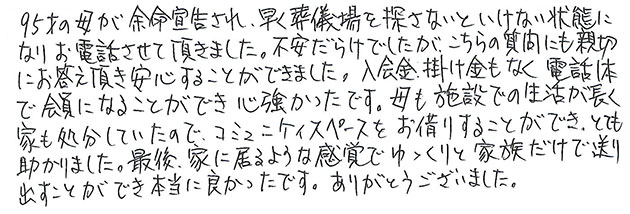 95才の母が余命宣告され、早く葬儀場を探さないといけない状態に
なりお電話させて頂きました。不安だらけでしたが、こちらの質問にも親切
にお答え頂き安心することができました。入会金、掛け金もなく電話1本
で会員になることができ心強かったです。母も施設での生活が長く
家も処分していたので、コミュニケィスペースをお借りすることができ、とても
助かりました。最後、家に居るような感覚でゆっくりと家族だけで送り
出すことができ本当に良かったです。ありがとうございました。